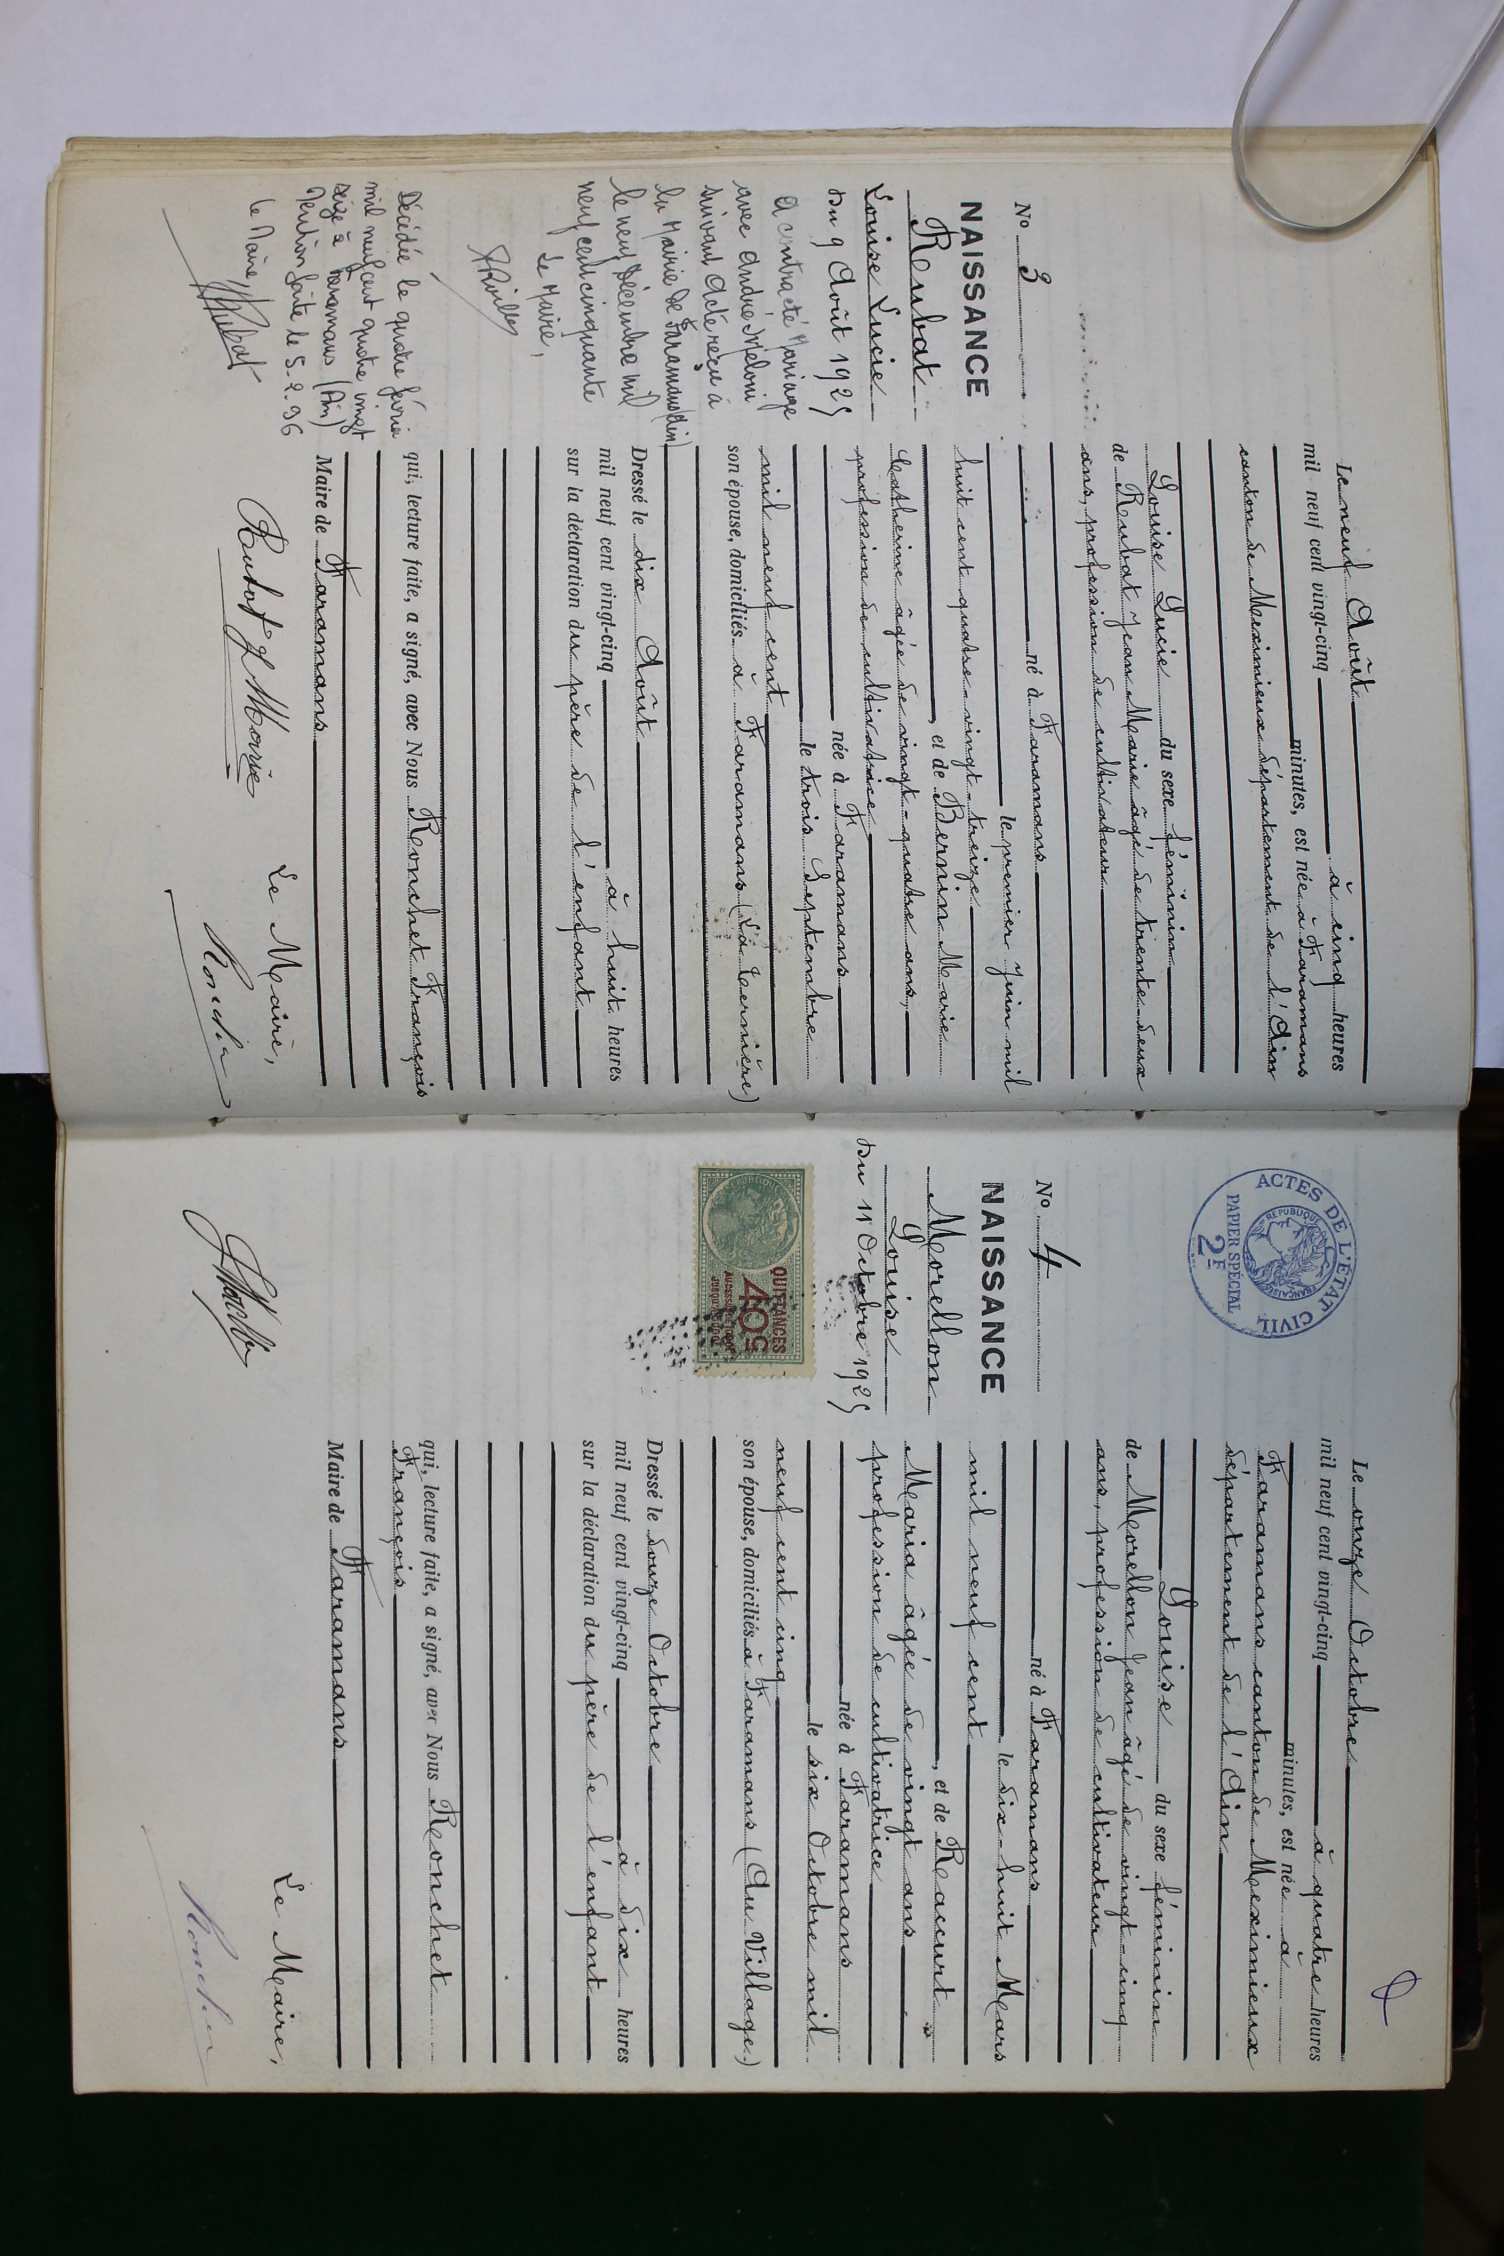 No 3
NAISSANCE
Rubat
Louise Lucie
du 9 Août 1925
a contracté Mariage
avec André Meloni
suivant acte reçu à
la Mairie de Faramans (Ain)
le neuf Décembre mil
neuf cent cinquante
Le Maire,
Décédée le quatre février
mil neuf cent quatre vingt
seize à Faramans (Ain)
Mention faite le 5.2.96
le Maire, Rubat
Le neuf Août
mil neuf cent vingt-cinq à cinq heures
minutes, est née à Faramans
canton de Meximieux département de l'Ain
Louise Lucie du sexe féminin
de Rubat Jean Marie âgé de trente-deux
ans, profession de cultivateur
né à Faramans
le premier Juin mil
huit cent quatre-vingt-treize
, et de Bernin Marie
Catherine âgée de vingt-quatre ans,
profession de cultivatrice
née à Faramans
le trois Septembre
mil neuf cent
son épouse, domiciliés à Faramans (La Ternière)
Dressé le dix Août
mil neuf cent vingt-cinq à huit heures
sur la déclaration du père de l'enfant
qui, lecture faite, a signé, avec Nous Ronchet François
Maire de Faramans
Le Maire,
Rubat J Marie
Ronchet
ACTES DE L'ÉTAT CIVIL
RÉPUBLIQUE FRANÇAISE
PAPIER SPÉCIAL
2F
No 4
NAISSANCE
Morellon
Louise
du 11 Octobre 1925
QUITTANCES
40c
Le onze Octobre
mil neuf cent vingt-cinq à quatre heures
minutes, est née à
Faramans canton de Meximieux
département de l'Ain
Louise du sexe féminin
de Morellon Jean âgé de vingt-cinq
ans, profession de cultivateur
né à Faramans
le dix-huit Mars
mil neuf cent
, et de Raccurt
Maria âgée de vingt ans
profession de cultivatrice
née à Faramans
le six Octobre mil
neuf cent cinq
son épouse, domiciliés à Faramans (Au Village)
Dressé le douze Octobre
mil neuf cent vingt-cinq à dix heures
sur la déclaration du père de l'enfant
qui, lecture faite, a signé, avec Nous Ronchet
François
Maire de Faramans
Le Maire,
Ronchet